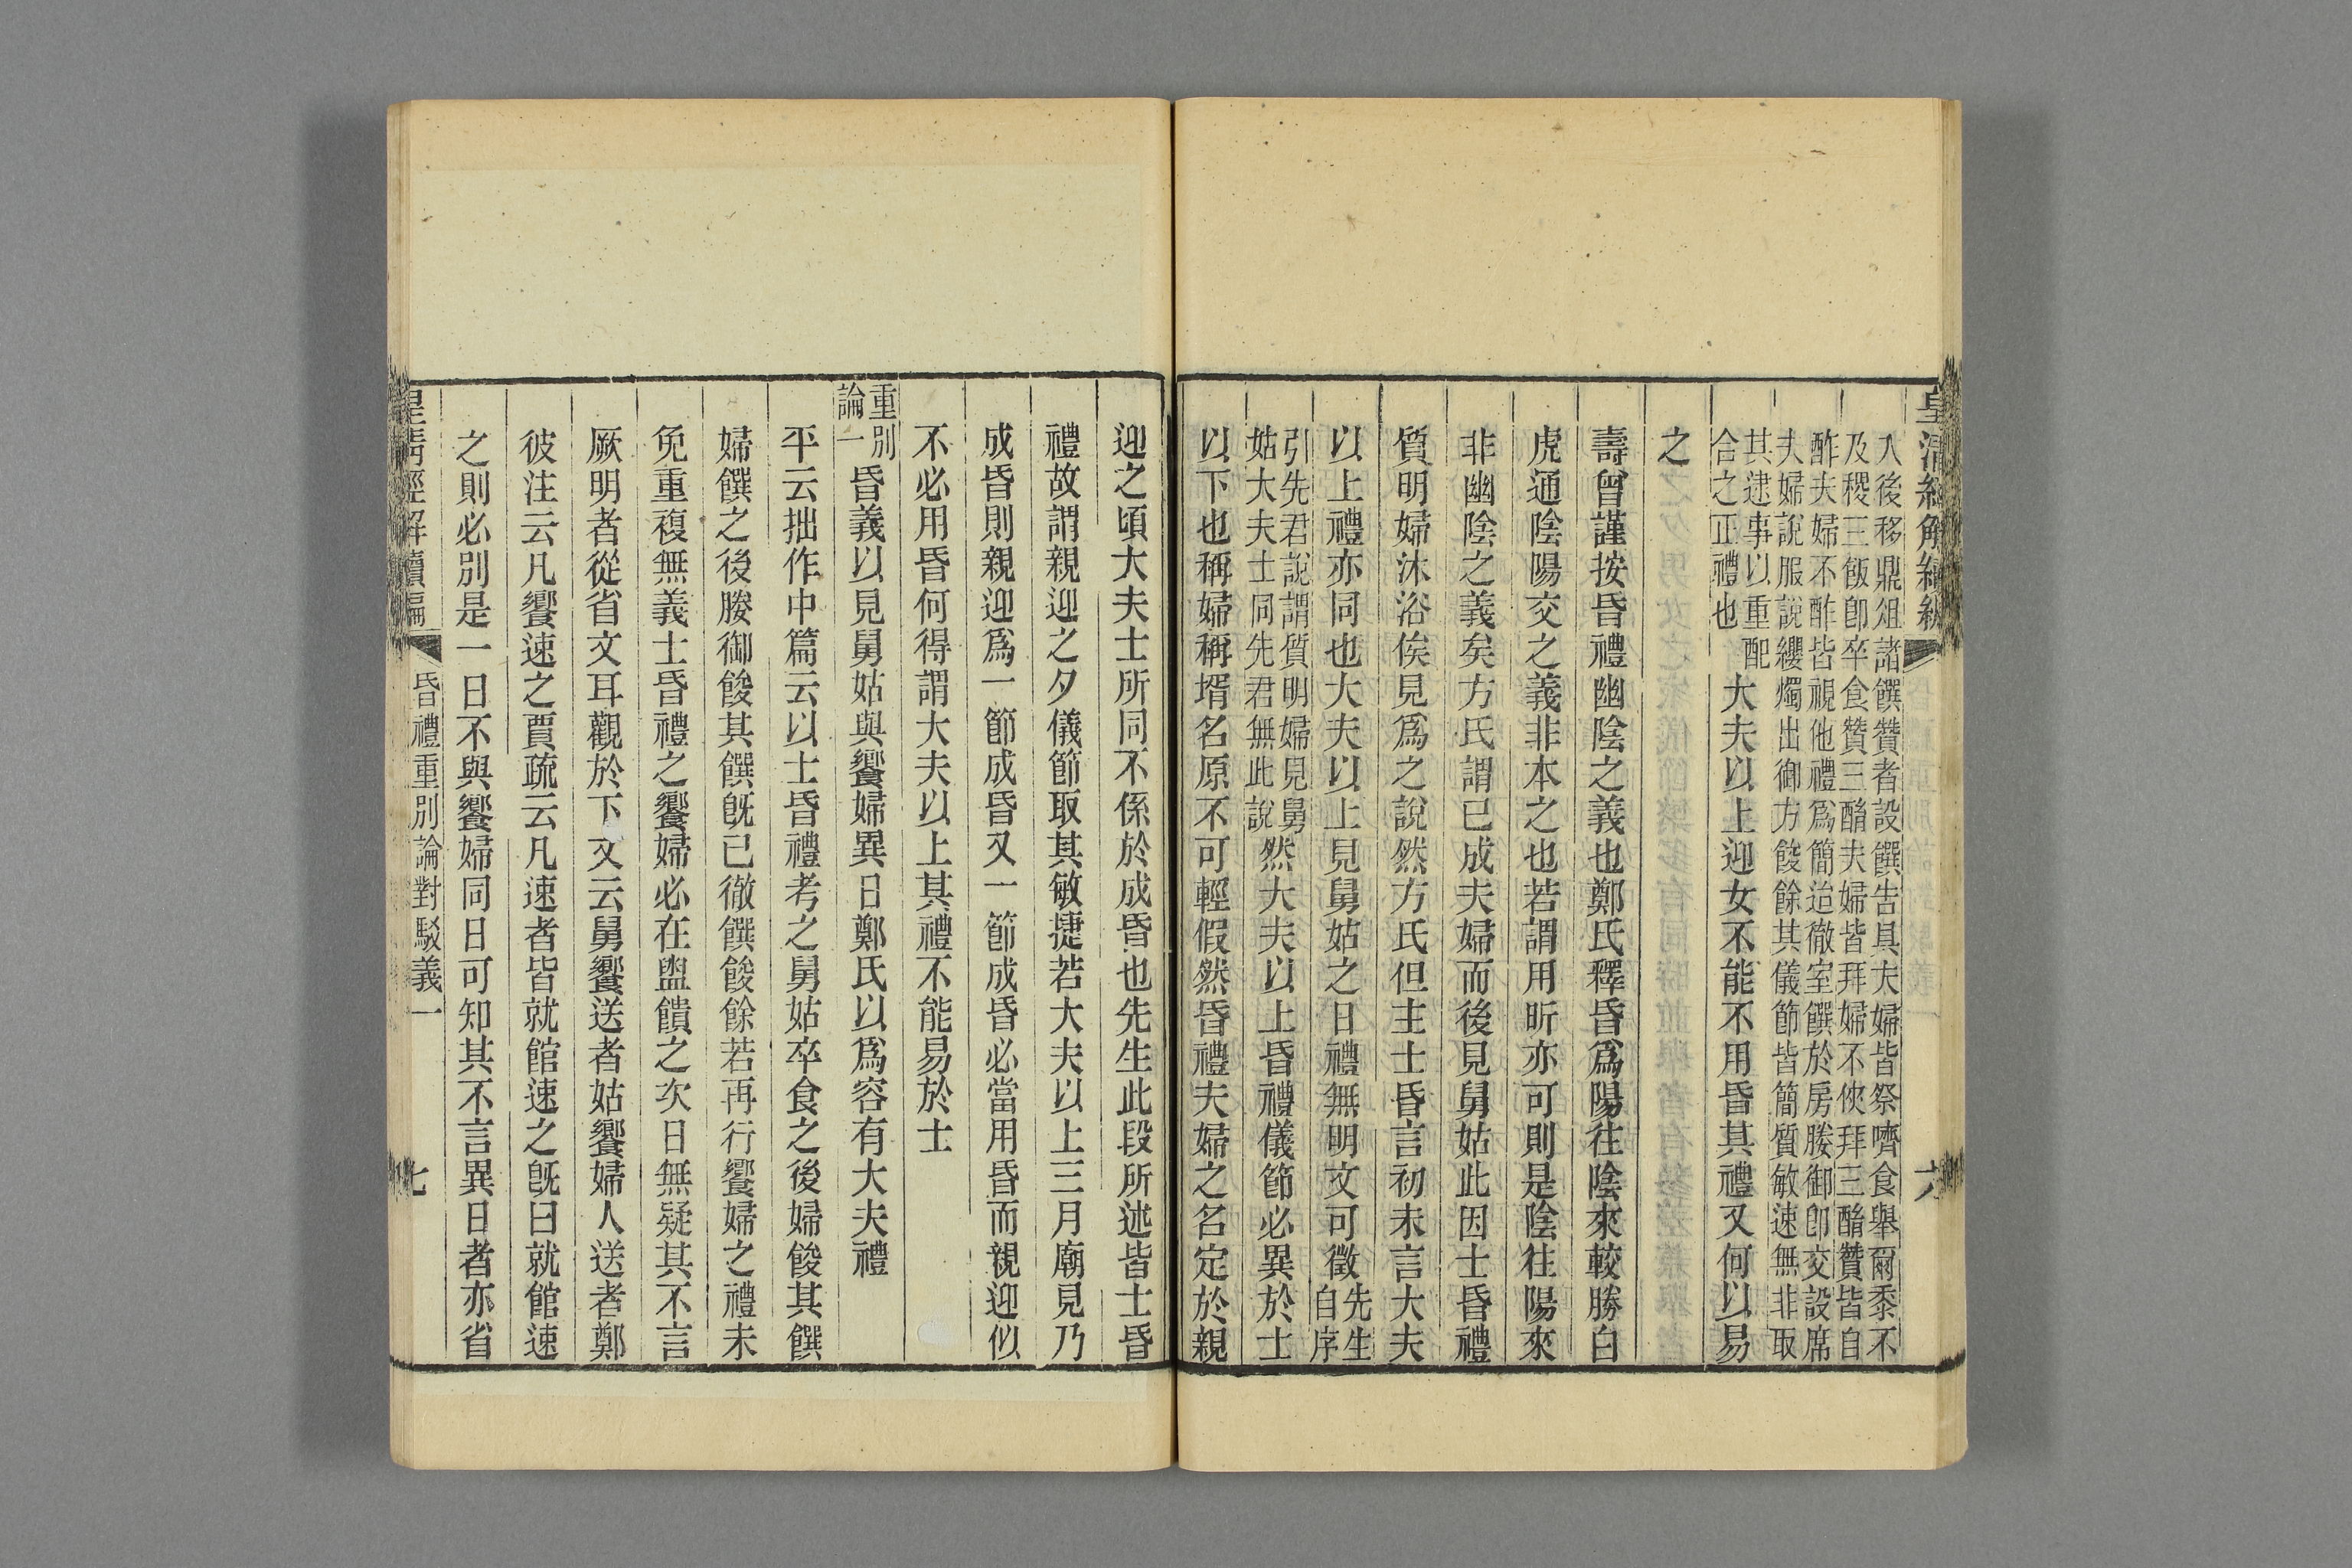 皇清經解續編
六
入後移鼎俎諸饌贊者設饌告具夫婦皆祭嚌食舉爾黍不
及稷三飯卽卒食贊三酳夫婦皆拜婦不俠拜三酳贊皆自
酢夫婦不酢皆視他禮爲簡迨徹室饌於房媵御卽交設席
夫婦說服說纓燭出御方餕餘其儀節皆簡質敏速無非取
其逮事以重配
合之正禮也
大夫以上迎女不能不用昏其禮又何以易
之
壽曾謹按昏禮幽陰之義也鄭氏釋昏爲陽往陰來較勝白
虎通陰陽交之義非本之也若謂用昕亦可則是陰往陽來
非幽陰之義矣方氏謂已成夫婦而後見舅姑此因士昏禮
質明婦沐浴俟見爲之說然方氏但主士昏言初未言大夫
以上禮亦同也大夫以上見舅姑之日禮無明文可徵
先生
自序
引先君說謂質明婦見舅
姑大夫士同先君無此說
然大夫以上昏禮儀節必異於士
以下也稱婦稱壻名原不可輕假然昏禮夫婦之名定於親
迎之頃大夫士所同不係於成昏也先生此段所述皆士昏
禮故謂親迎之夕儀節取其敏捷若大夫以上三月廟見乃
成昏則親迎爲一節成昏又一節成昏必當用昏而親迎似
不必用昏何得謂大夫以上其禮不能易於士
重別
論一
昏義以見舅姑與饗婦異日鄭氏以爲容有大夫禮
平云拙作中篇云以士昏禮考之舅姑卒食之後婦餕其饌
婦饌之後媵御餕其饌旣已徹饌餕餘若再行饗婦之禮未
免重複無義士昏禮之饗婦必在盥饋之次日無疑其不言
厥明者從省文耳觀於下文云舅饗送者姑饗婦人送者鄭
彼注云凡饗速之賈疏云凡速者皆就館速之旣曰就館速
之則必別是一日不與饗婦同日可知其不言異日者亦省
皇淸經解續編
昏禮重別論對駁義一
七